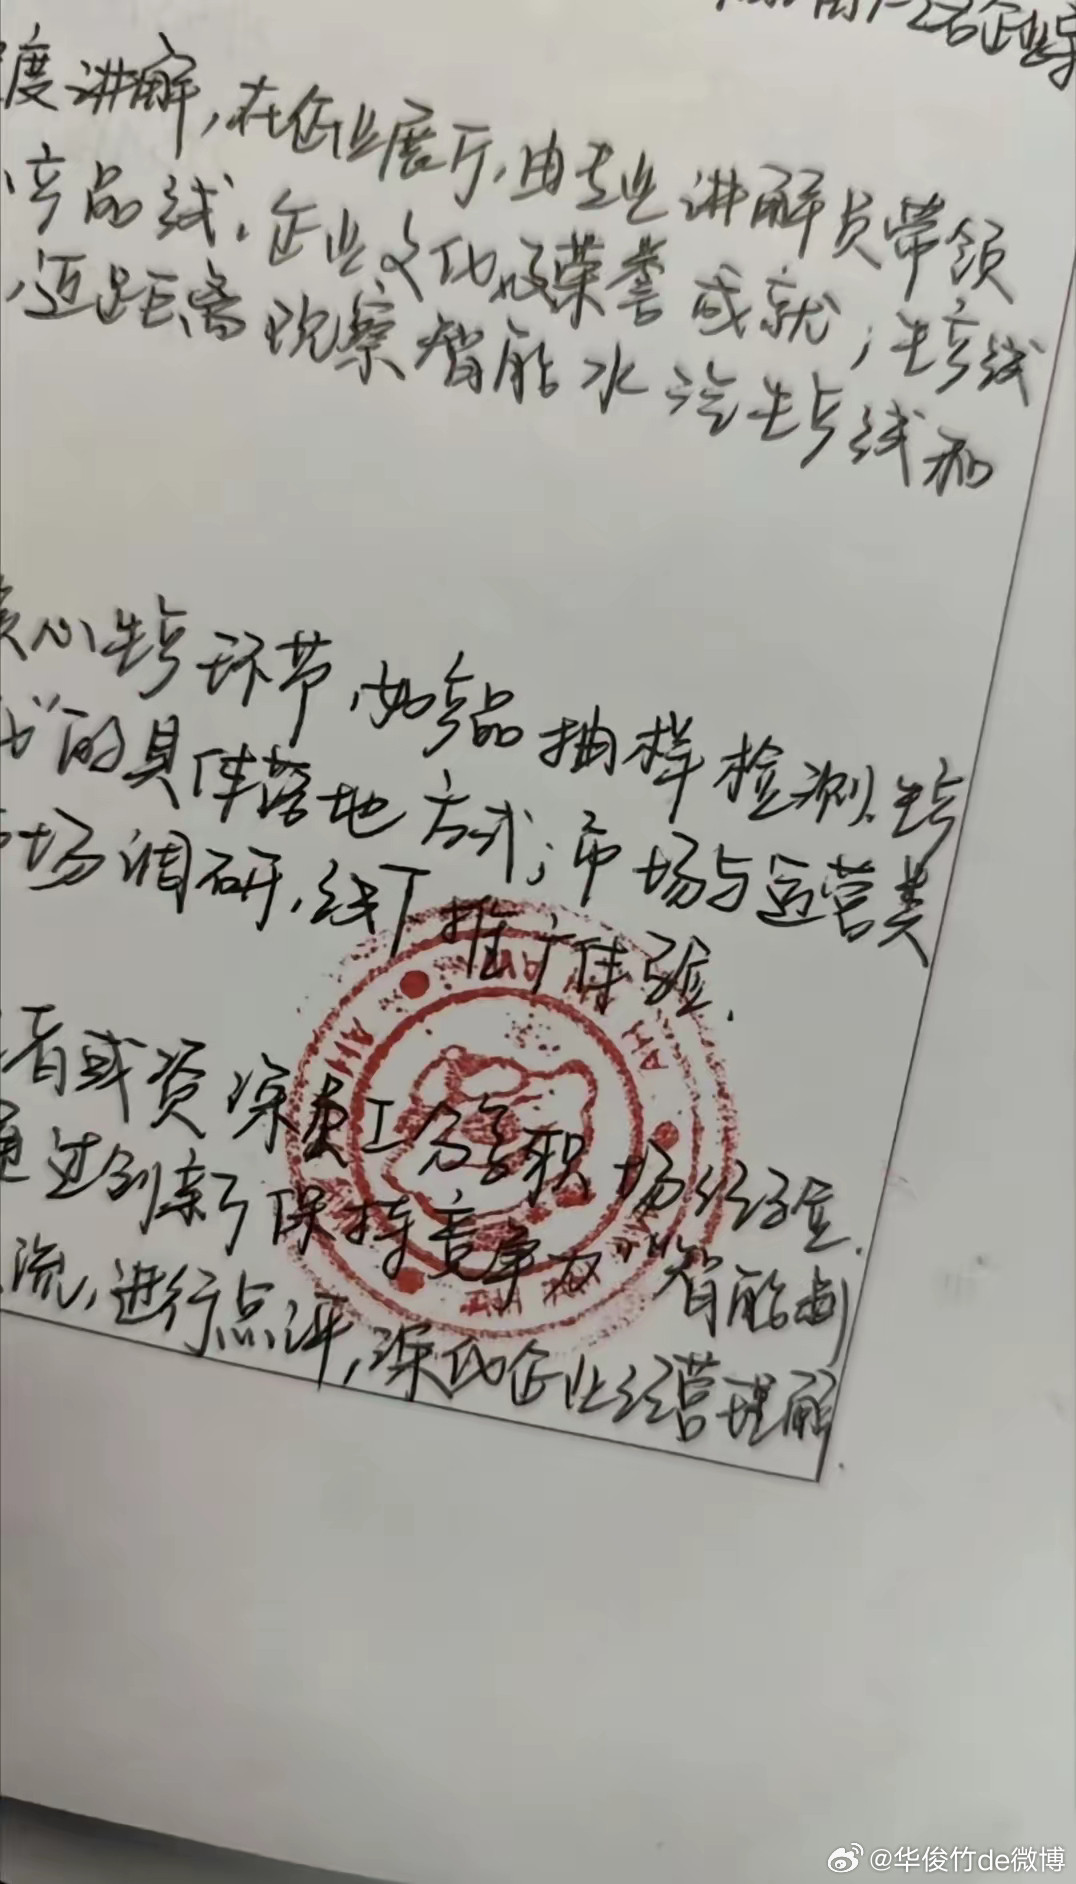 名企业
度讲解,在企业展厅,由专业讲解员带领
产品线、企业文化及荣誉成就;生产线
,近距离观察智能水洗生产线和
核心生产环节,如产品抽样检测、生产
的具体落地方式;市场与运营类
市场调研,线下推广体验.
者或资深员工分享职场经验.
通过创新保持竞争力""智能制
流,进行点评,深化企业经营理解.
AH
AH
@华俊竹de微博